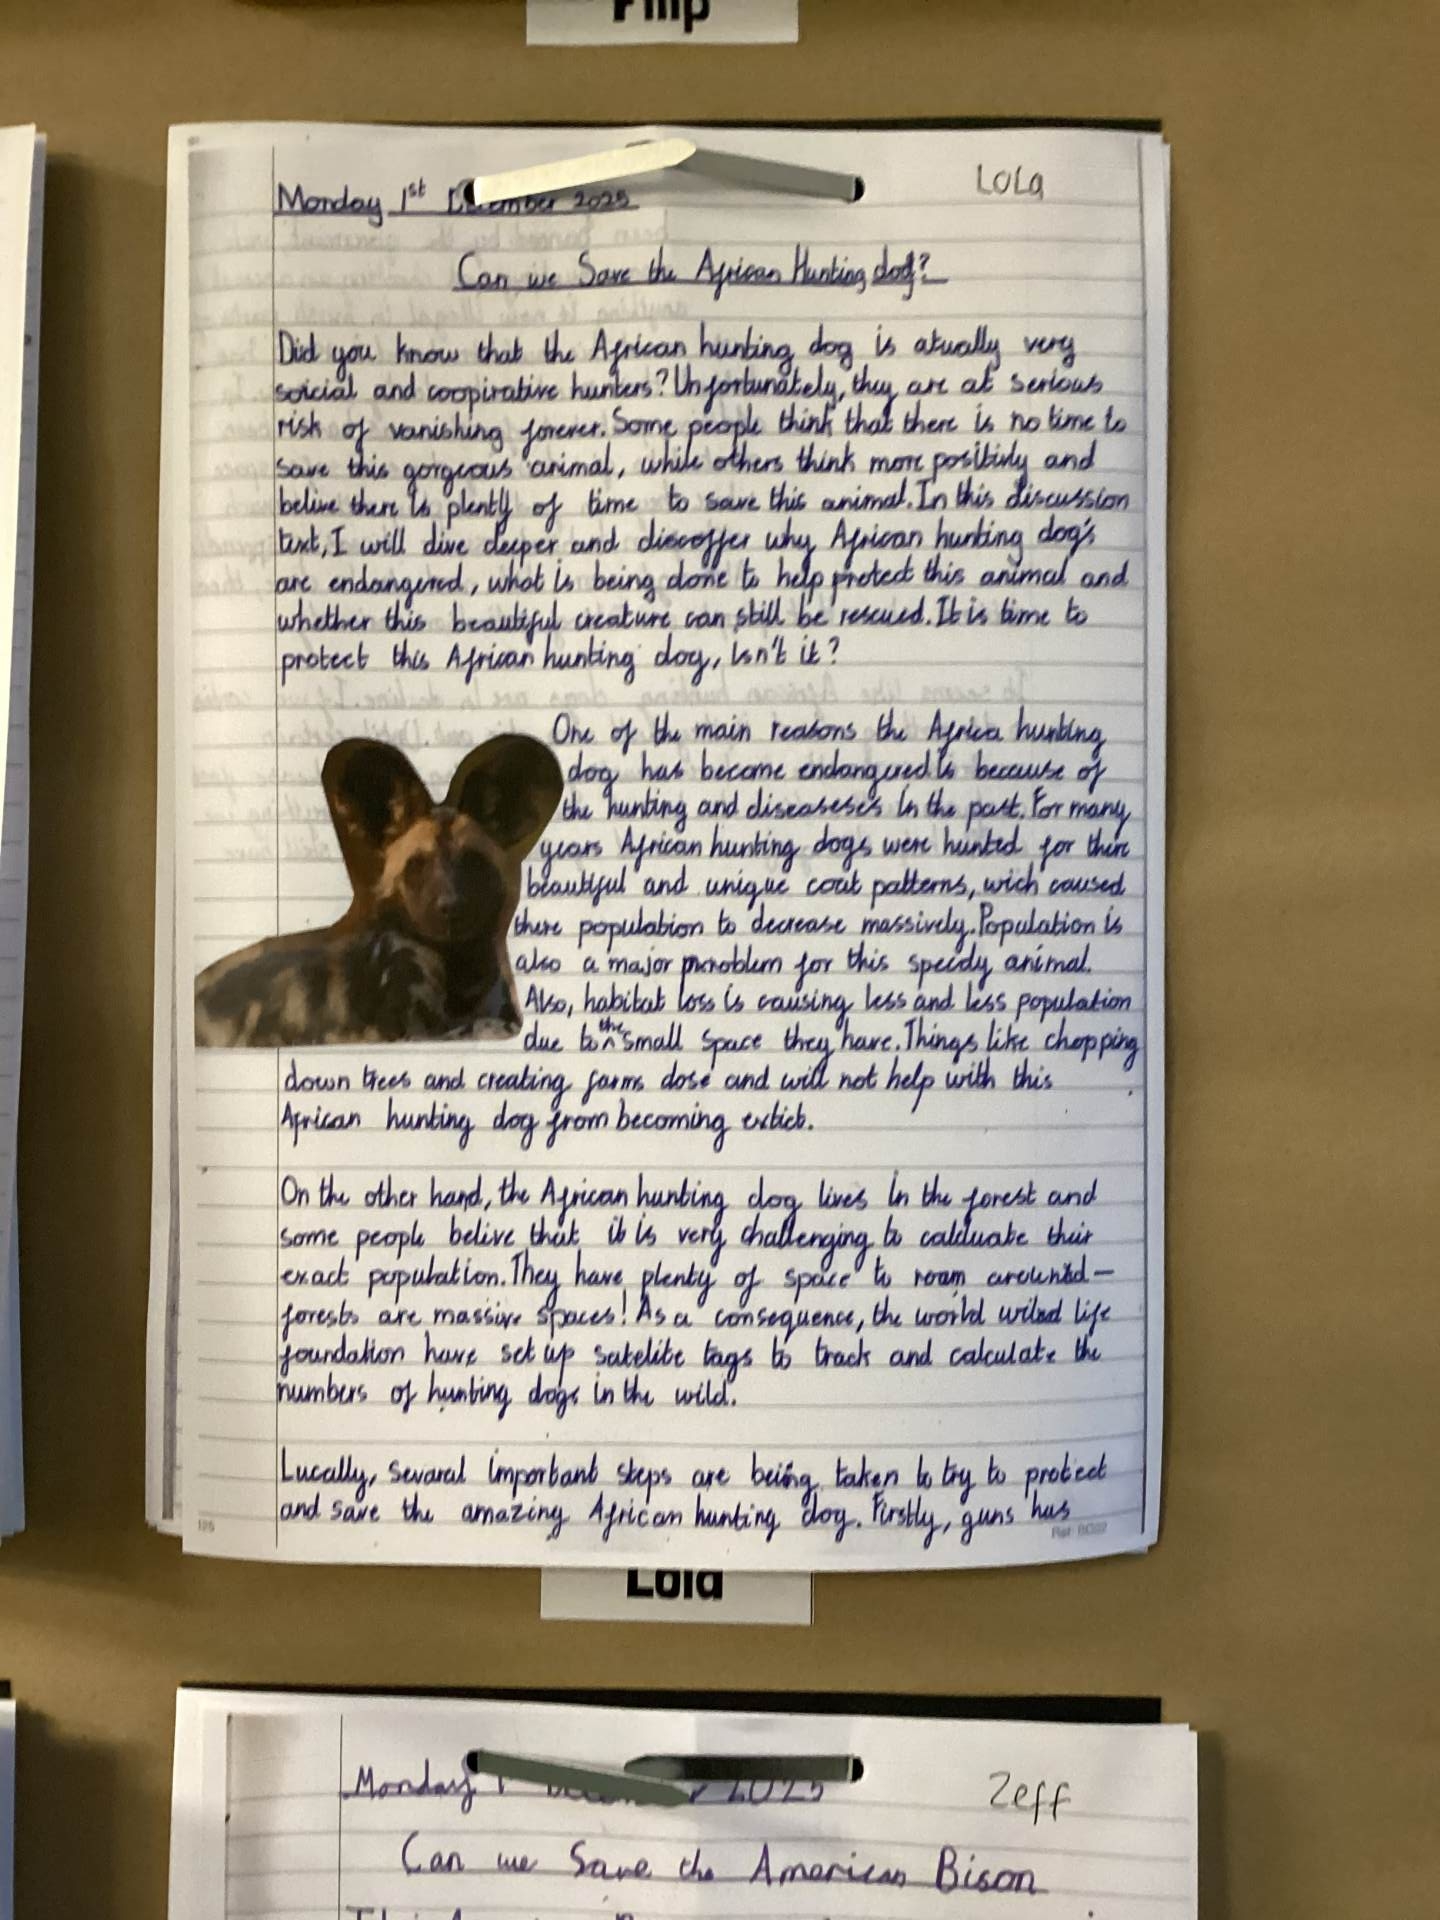 Filip
Monday 1st December 2025
Lola
Can we Save the African Hunting dog?
Did you know that the African hunting dog is atually very
soicial and coopirative hunters? Unfortunately, they are at serious
risk of vanishing forever. Some people think that there is no time to
save this gorgeous animal, while others think more positivly and
belive there is plently of time to save this animal. In this discussion
text, I will dive deeper and discoffer why African hunting dog's
are endangered, what is being done to help protect this animal and
whether this beautiful creature can still be rescued. It is time to
protect this African hunting dog, isn't it?
One of the main reasons the Africa hunting
dog has become endangered is because of
the hunting and diseaseses in the past. For many
years African hunting dogs were hunted for there
beautiful and unique coat patterns, wich caused
there population to decrease massively. Population is
also a major problem for this speedy animal.
Also, habitat loss is causing less and less population
due to the small space they have. Things like chopping
down trees and creating farms dose and will not help with this
African hunting dog from becoming extict.
On the other hand, the African hunting dog lives in the forest and
some people belive that it is very challenging to calduate their
exact population. They have plenty of space to roam around-
forests are massive spaces! As a consequence, the world wild life
foundation have set up satelite tags to track and calculate the
numbers of hunting dogs in the wild.
Lucally, sevaral important steps are being taken to try to protect
and save the amazing African hunting dog. Firstly, guns has
125
Lola
Monday 2025
Zeff
Can we Save the American Bison